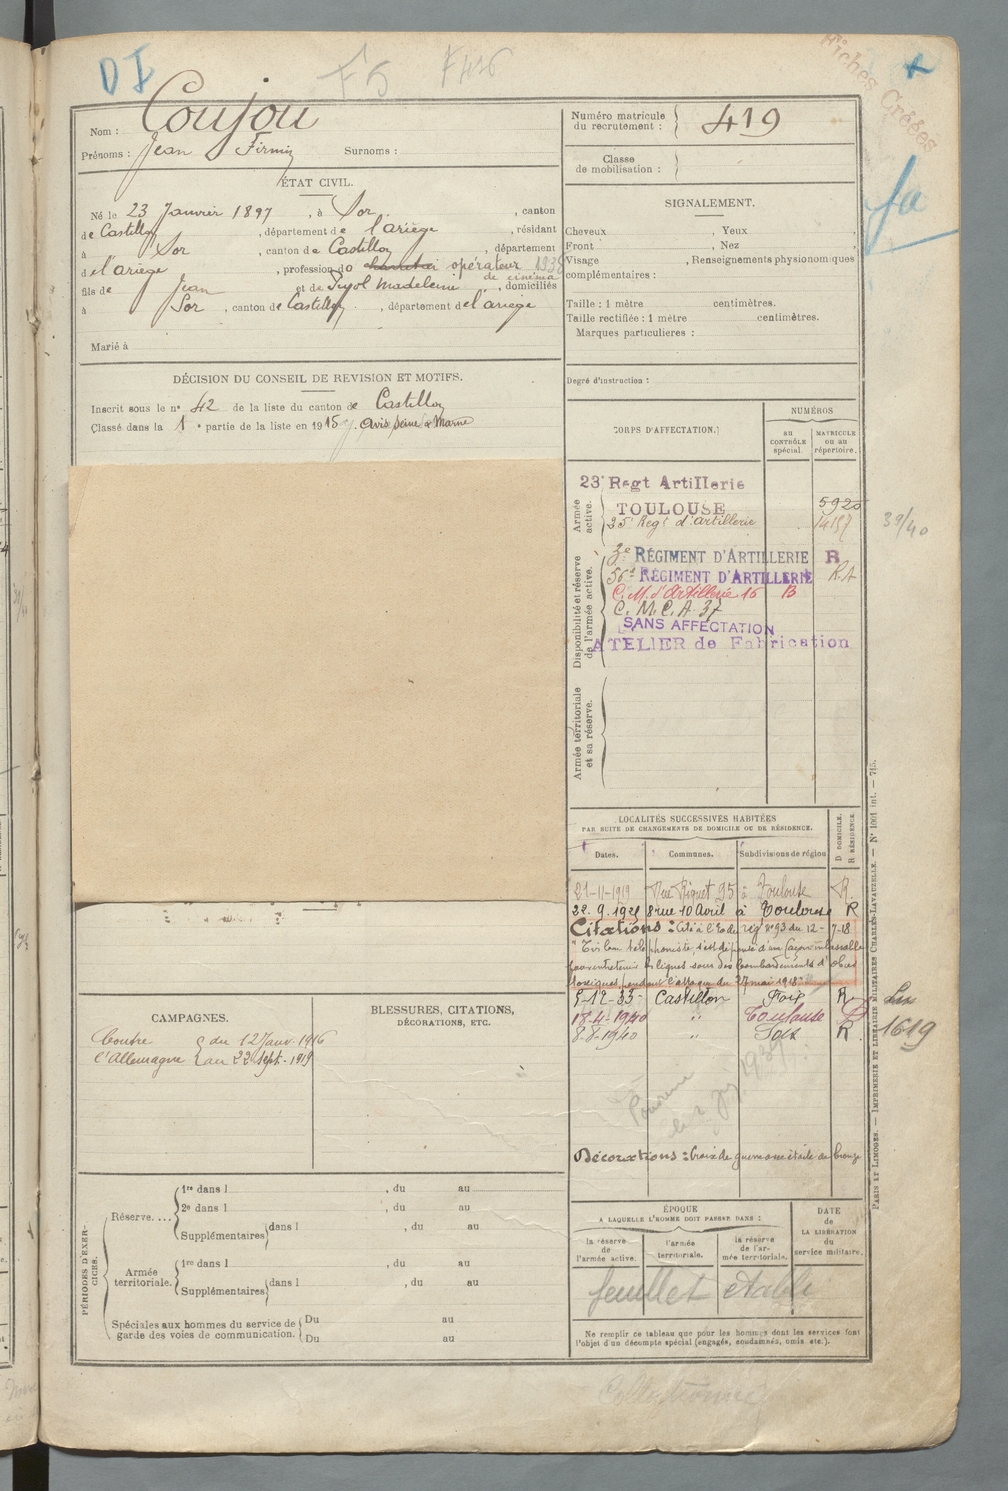 DI F5 F426
Fiches Créées
Nom : Coujou
Prénoms : Jean Firmin Surnoms :
Numéro matricule du recrutement : 419
Classe de mobilisation :
ÉTAT CIVIL.
Né le 23 Janvier 1897, à Sor, canton
de Castillon, département de l'ariège, résidant
à Sor, canton de Castillon, département
de l'ariège, profession de opérateur de cinéma 1938
fils de Jean et de Pujol Madeleine, domiciliés
à Sor, canton de Castillon, département de l'ariège
Marié à
DÉCISION DU CONSEIL DE REVISION ET MOTIFS.
Inscrit sous le n° 42 de la liste du canton de Castillon
Classé dans la 1e partie de la liste en 1915 avis Seine & Marne
SIGNALEMENT.
Cheveux , Yeux
Front , Nez
Visage , Renseignements physionomiques
complémentaires :
Taille : 1 mètre centimètres.
Taille rectifiée : 1 mètre centimètres.
Marques particulières :
Degré d'instruction :
CORPS D'AFFECTATION.
NUMÉROS
AU CONTRÔLE spécial.
MATRICULE ou au répertoire.
Armée active.
23e Regt Artillerie
TOULOUSE 5920
35e Regt d'artillerie 14157
39/40
Disponibilité et réserve de l'armée active.
3e RÉGIMENT D'ARTILLERIE R
56e RÉGIMENT D'ARTILLERIE R.A
C.M. d'Artillerie 16 B
C.M.C.A 37
SANS AFFECTATION
ATELIER de Fabrication
Armée territoriale et sa réserve.
LOCALITÉS SUCCESSIVES HABITÉES
PAR SUITE DE CHANGEMENTS DE DOMICILE OU DE RÉSIDENCE.
Dates. Communes. Subdivisions de région D DOMICILE. R RÉSIDENCE.
21-11-1919 Rue Riquet 95 à Toulouse R.
22.9.1921 8 rue 10 Avril à Toulouse R
Citations : Cité à l'O. du rég. n° 93 du 12-7-18
5-12-33 Castillon Foix R
18-4-1940 " Toulouse D
8-8-1940 " Foix R.
1619
Décorations : Croix de guerre avec étoile de bronze
CAMPAGNES.
Contre du 12 Janv. 1916
l'Allemagne au 22 Sept. 1919
BLESSURES, CITATIONS,
DÉCORATIONS, ETC.
PÉRIODES D'EXERCICES.
Réserve....
1re dans l , du au
2e dans l , du au
Supplémentaires dans l , du au
Armée territoriale.
1re dans l , du au
Supplémentaires dans l , du au
Spéciales aux hommes du service de garde des voies de communication.
Du au
Du au
ÉPOQUE
A LAQUELLE L'HOMME DOIT PASSER DANS :
la réserve de l'armée active.
l'armée territoriale.
la réserve de l'armée territoriale.
DATE de LA LIBÉRATION du service militaire.
feuillet établi
Ne remplir ce tableau que pour les hommes dont les services font
l'objet d'un décompte spécial (engagés, condamnés, omis, etc.).
PARIS ET LIMOGES. — IMPRIMERIE ET LIBRAIRIE MILITAIRES CHARLES-LAVAUZELLE. — N° 1001 int. — 715.